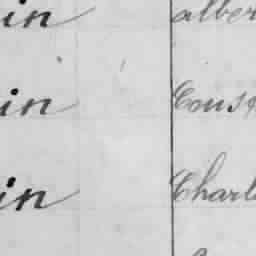 in alber
in Cons
in Charl